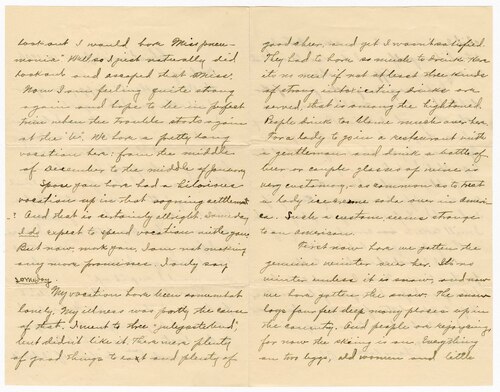 look out I would hove Miss pneu-
monia" Well so I just naturally did
look out and escaped that "Miss".
Now I am feeling quite strong
again and hope to be in perfect
time when the trouble starts again
at the "U". We have a pretty long
vacation here, from the middle
of December to the middle of January
Spose you have had a hilarious
vacation up in that
! And that is certainly allright. Someday
I do expect to spend vacation with you.
But now, mark you, I am not making
any more promises. I only say
someday
My vacation have been somewhat
lonely. My illness was partly the cause
of that. I went to three "julegastebud",
but didn't like it. There was plenty
of good things to eat and plenty of
good cheer, and yet I wasn't satisfied.
They had to have so much to drink. Here
it is no meal if not at least three kinds
of strong intoxicating drinks are
served, that is among the hightoned.
People drink too blame much over here.
For a lady to go in a restaurant with
a gentleman and drink a bottle of
beer or couple glasses of wine is
very customary, as common as to treat
a lady icecreame soda over in Ameri-
ca. Such a custom seems strange
to an american.
First now have we gotten the
genuine winter over her. It is no
winter unless it is snow, and now
we have gotten the snow. The snow
lays four feet deep many places up in
the country, And people are rejoysing
for now the skiing is on. Everything
on two leggs, old women and little